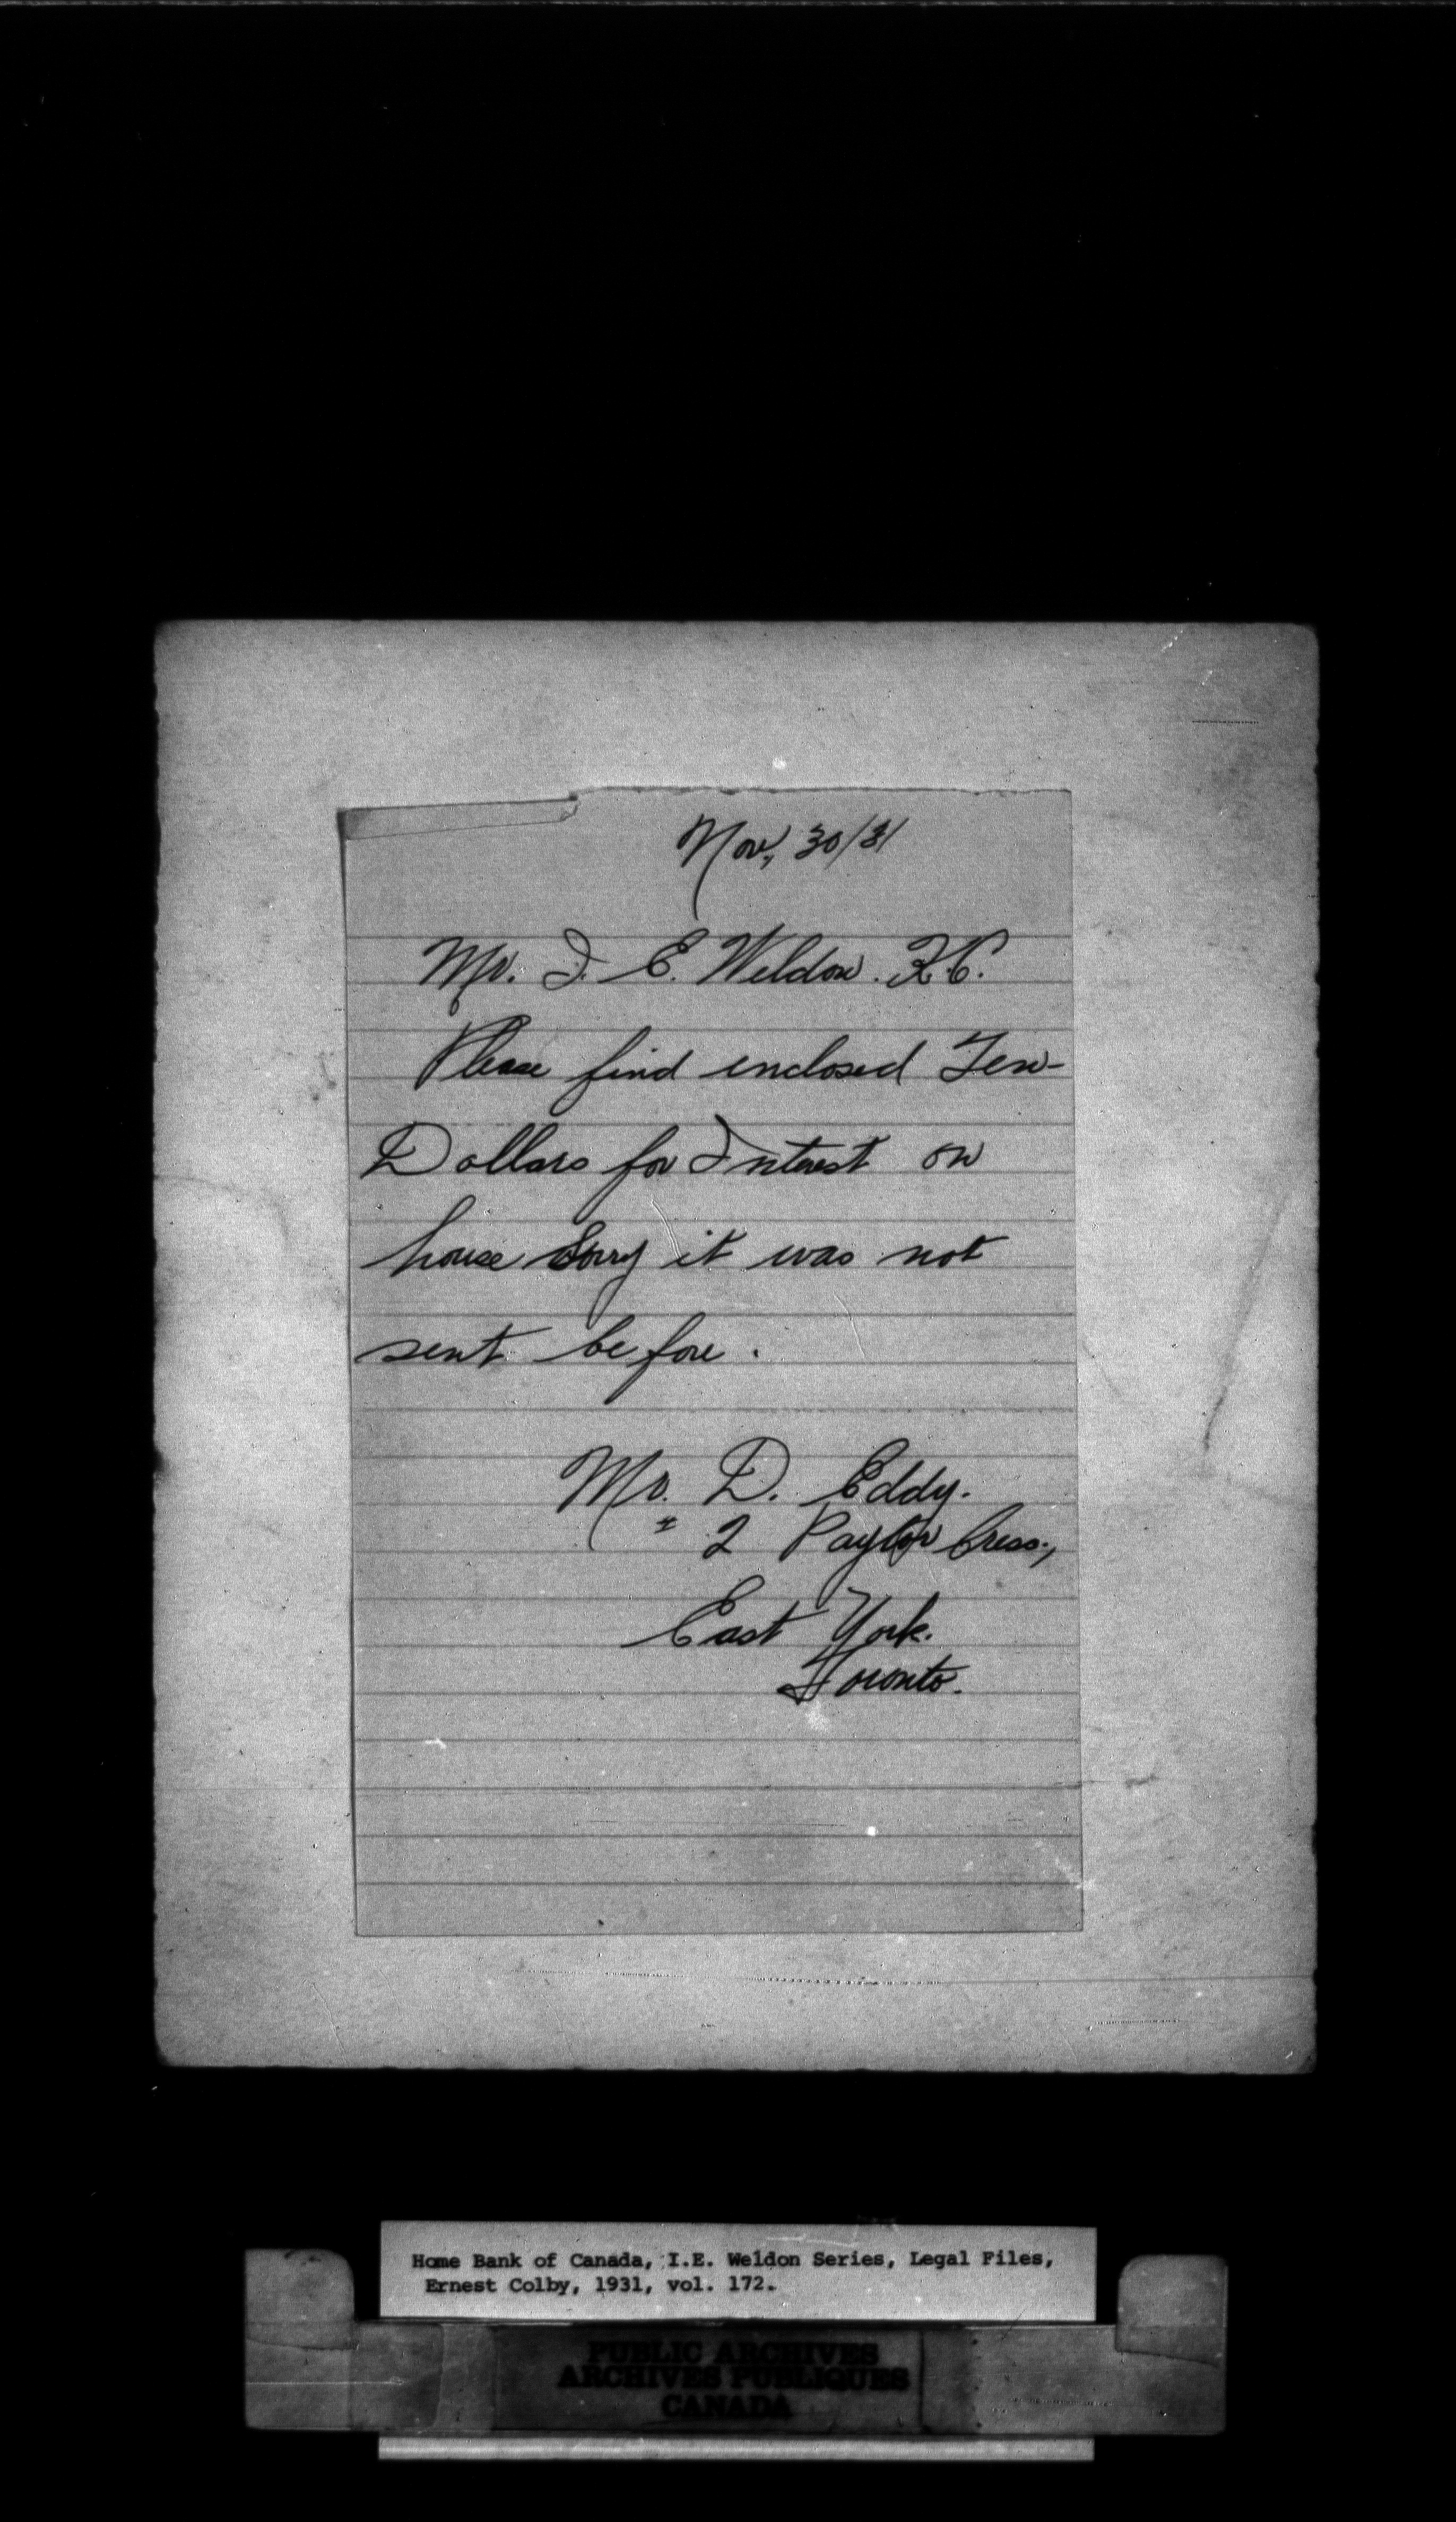 Nov, 30/31
Mr. I. E. Weldon. K.C.
Please find enclosed Ten-
Dollars for Interest on
house Sorry it was not
sent before.
Mr. D. Eddy.
# 2 Paylor Cres.,
East York.
Toronto.
Home Bank of Canada, I.E. Weldon Series, Legal Files,
Ernest Colby, 1931, vol. 172.
PUBLIC ARCHIVES
ARCHIVES PUBLIQUES
CANADA